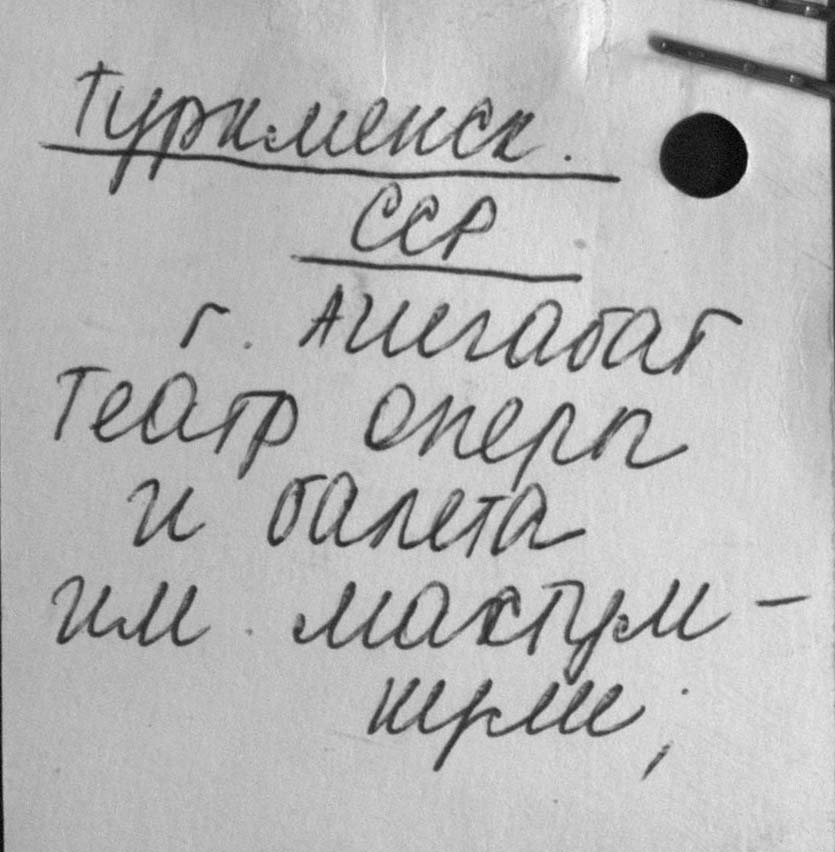 Туркменск.
ССР
г. Ашгабат
Театр оперы
и балета
им. Махтум-
кули;